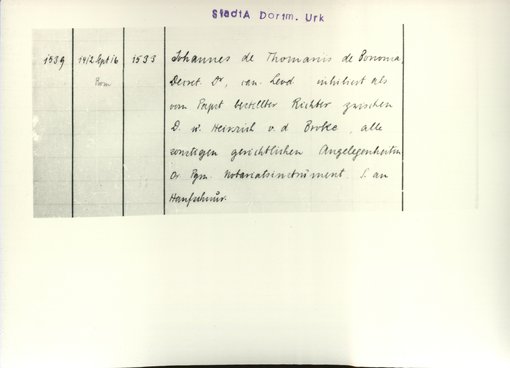 StadtA Dortm. Urk
1539 1412 Sept 16 1533 Johannes de Thomariis de Bononia,
Rom Decret. Dr, can. Leod inhibiert als
vom Papst bestellter Richter zwischen
D. u. Heinrich v. d. Broke, alle
sonstigen gerichtlichen Angelegenheiten
Or Pgm. Notariatsinstrument. S. an
Hanfschnur.